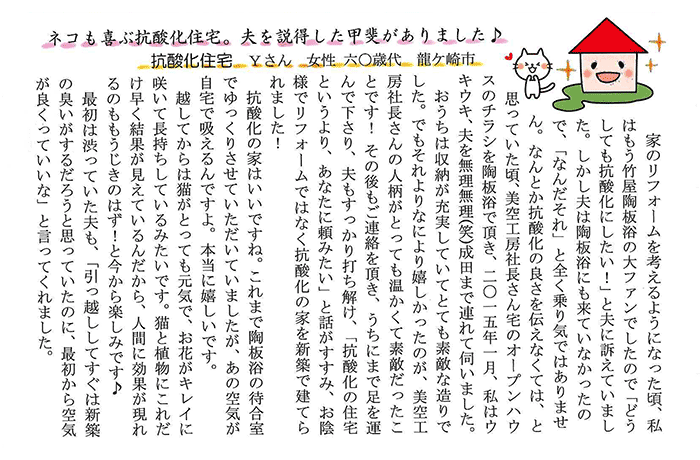 ネコも喜ぶ抗酸化住宅。夫を説得した甲斐がありました♪
抗酸化住宅　Ｙさん　女性　六〇歳代　龍ケ崎市
家のリフォームを考えるようになった頃、私
はもう竹屋陶板浴の大ファンでしたので「どう
しても抗酸化にしたい！」と夫に訴えていまし
た。しかし夫は陶板浴にも来ていなかったの
で、「なんだそれ」と全く乗り気ではありませ
ん。なんとか抗酸化の良さを伝えなくては、と
思っていた頃、美空工房社長さん宅のオープンハウ
スのチラシを陶板浴で頂き、二〇一五年一月、私はウ
キウキ、夫を無理無理(笑)成田まで連れて伺いました。
おうちは収納が充実していてとても素敵な造りで
した。でもそれよりなにより嬉しかったのが、美空工
房社長さんの人柄がとっても温かくて素敵だったこ
とです！その後もご連絡を頂き、うちにまで足を運
んで下さり、夫もすっかり打ち解け、「抗酸化の住宅
というより、あなたに頼みたい」と話がすすみ、お陰
様でリフォームではなく抗酸化の家を新築で建てら
れました！
抗酸化の家はいいですね。これまで陶板浴の待合室
でゆっくりさせていただいていましたが、あの空気が
自宅で吸えるんですよ。本当に嬉しいです。
越してからは猫がとっても元気で、お花がキレイに
咲いて長持ちしているみたいです。猫と植物にこれだ
け早く結果が見えているんだから、人間に効果が現れ
るのももうじきのはず！と今から楽しみです♪
最初は渋っていた夫も、「引っ越ししてすぐは新築
の臭いがするだろうと思っていたのに、最初から空気
が良くっていいな」と言ってくれました。